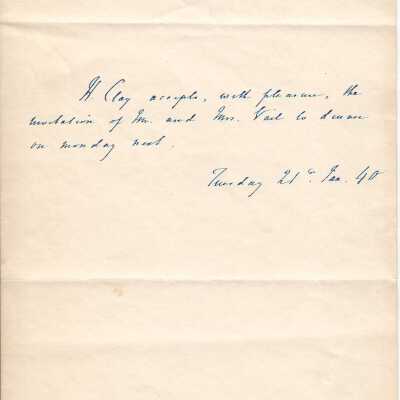 H. Clay accepts, with pleasure, the
invitation of Mr. and Mrs. Vail to dinner
on monday next.
Tuesday 21st. Jan. 40